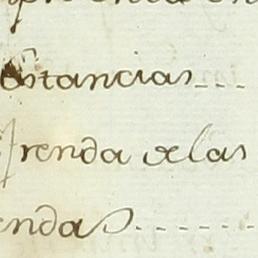 stancias...
renda de las
endas.......